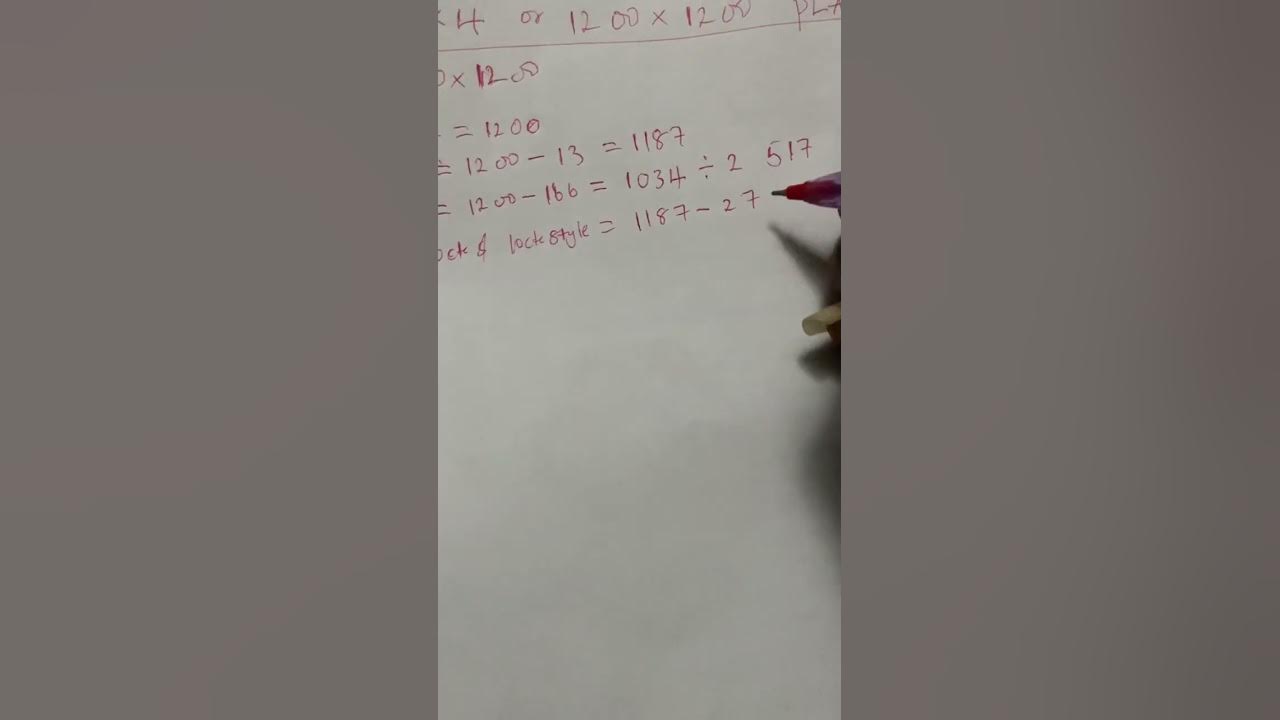 ×4 or 1200 × 1200
0×1200
= 1200
= 1200 - 13 = 1187
= 1200 - 166 = 1034 ÷ 2 517
ock & lockstyle = 1187 - 27